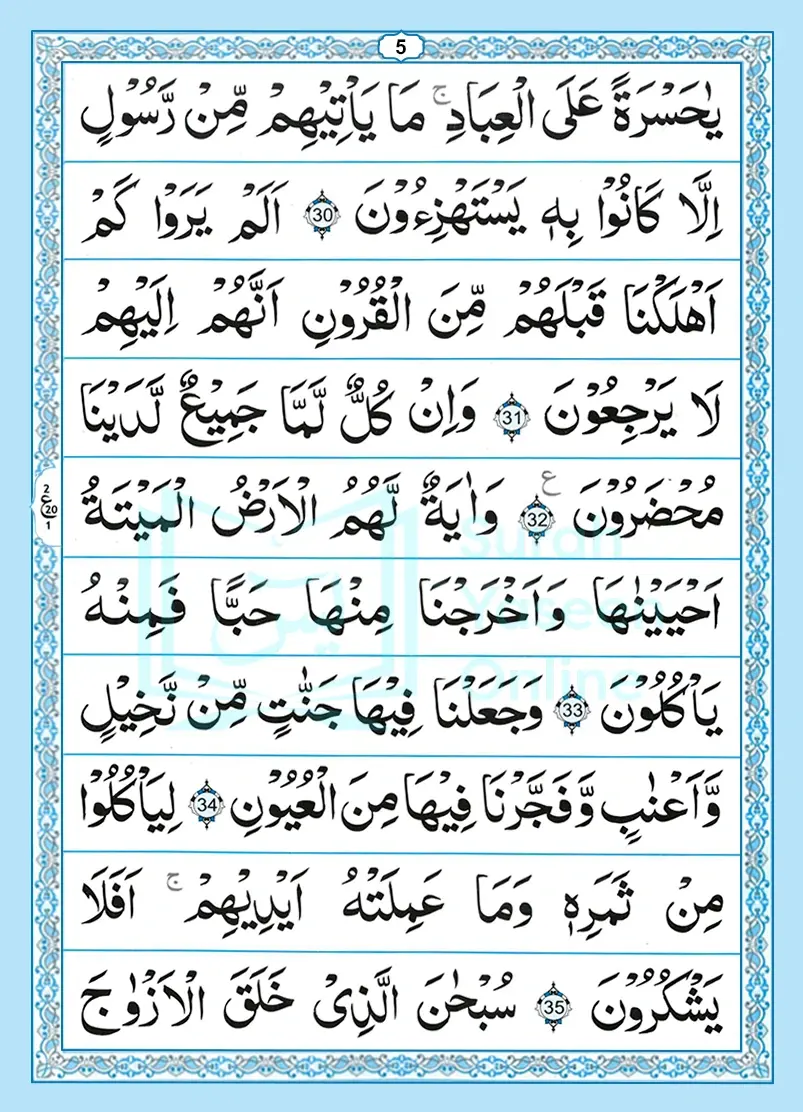 5
يٰحَسْرَةً عَلَى الْعِبَادِ ۚ مَا يَاْتِيْهِمْ مِّنْ رَّسُوْلٍ
اِلَّا كَانُوْا بِهٖ يَسْتَهْزِءُوْنَ 30 اَلَمْ يَرَوْا كَمْ
اَهْلَكْنَا قَبْلَهُمْ مِّنَ الْقُرُوْنِ اَنَّهُمْ اِلَيْهِمْ
لَا يَرْجِعُوْنَ 31 وَاِنْ كُلٌّ لَّمَّا جَمِيْعٌ لَّدَيْنَا
مُحْضَرُوْنَ 32 ع وَاٰيَةٌ لَّهُمُ الْاَرْضُ الْمَيْتَةُ
2
ع
20
1
اَحْيَيْنٰهَا وَاَخْرَجْنَا مِنْهَا حَبًّا فَمِنْهُ
يَاْكُلُوْنَ 33 وَجَعَلْنَا فِيْهَا جَنّٰتٍ مِّنْ نَّخِيْلٍ
وَّاَعْنٰبٍ وَّفَجَّرْنَا فِيْهَا مِنَ الْعُيُوْنِ 34 لِيَاْكُلُوْا
مِنْ ثَمَرِهٖ وَمَا عَمِلَتْهُ اَيْدِيْهِمْ ۚ اَفَلَا
يَشْكُرُوْنَ 35 سُبْحٰنَ الَّذِيْ خَلَقَ الْاَزْوٰجَ
يٰسٓ
Surah
Yaseen
Online